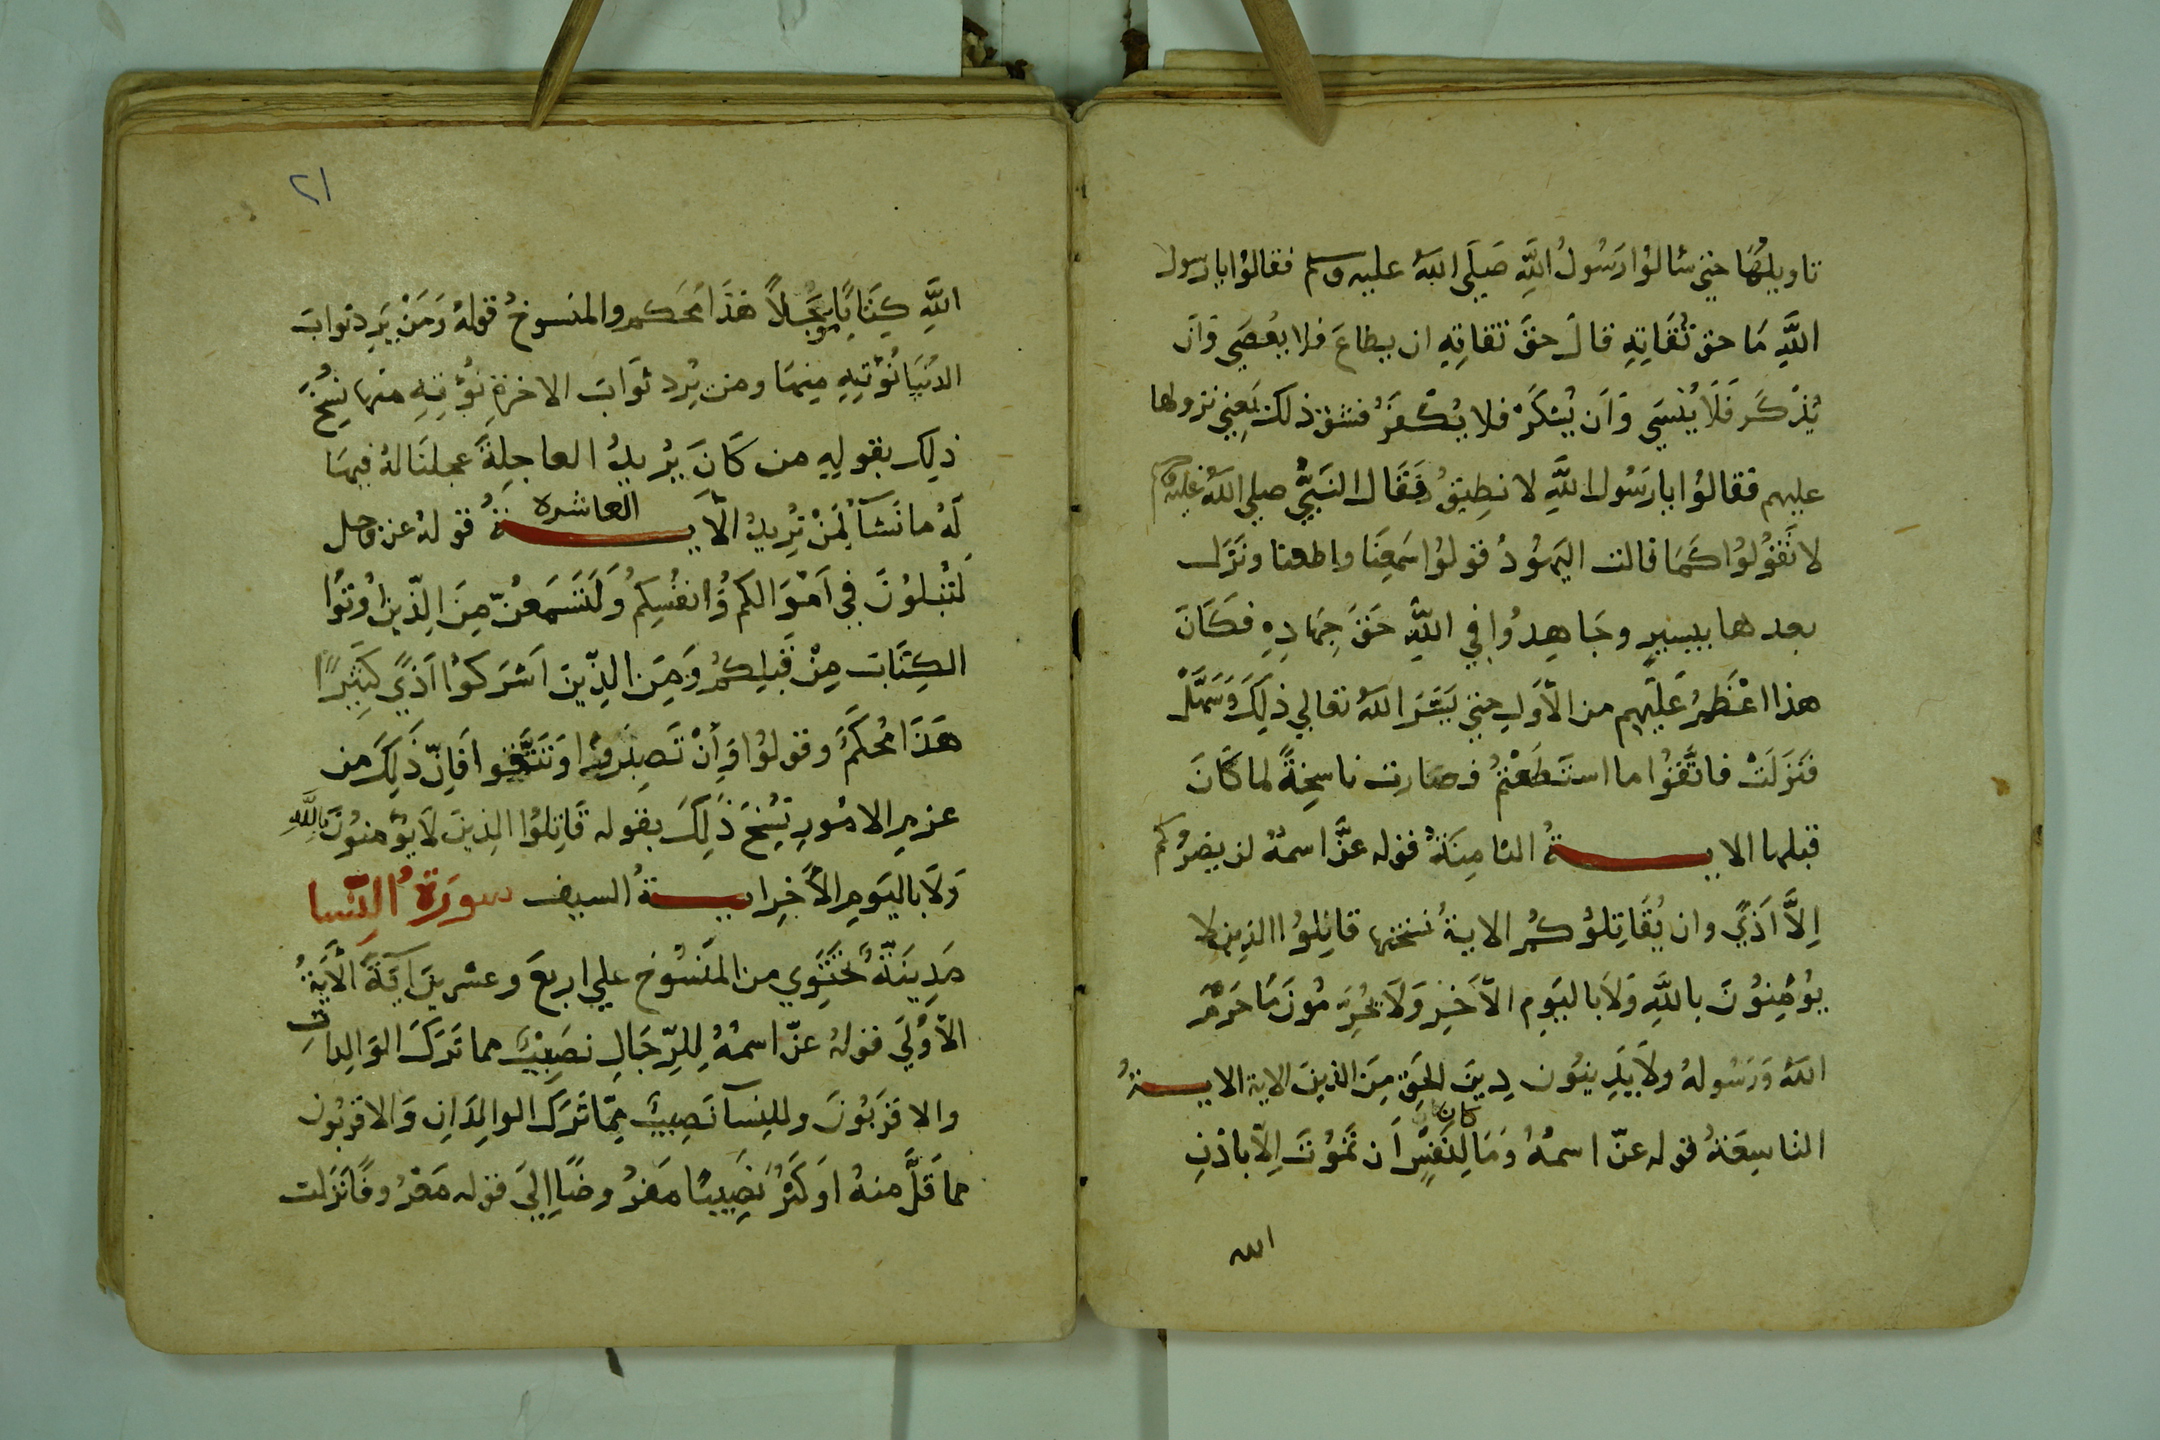 تاويلُهَا حتي سَالوُا رَسُولُ اللَّهِ صَلَي اللهُ عليه وسلم فقالوُا يارسول
اللَّهِ مَا حق تُقَاتِهِ قالَ حقَ تقاتِهِ ان يطاعَ فلا يعُصَي وَان
يُذْكَر فَلَا يُنْسَي وَان يُشكَرْ فلا يُكْفَرُ فشق ذلك يَعِني نزولها
عليهم فقالوُا يا رسَوُل اللَّهِ لا نطِيقُ فَقَال النَبيُّ صلي اللهُ عليه وسلم
لا تَقوُلوُا كَمَا قالت اليهوُدُ قولوُا سَمِعنَا واطعنا ونَزَل
بعدها بيسيرٍ وجَاهِدوُا فِي اللَّهِ حَقَ جِهَادِهِ فكَانَ
هذا اعْظمُ عَليْهِم من الأوَلِ حتي يَسَّرَ اللهُ تعالي ذلِكَ وَسَهَّلَ
فَنَزلَتْ فاتَّقوُا ما استَطَعْتمُ فصارت ناسِخةً لما كَانَ
قبلها الايــــــةُ الثامِنَةُ قوله عزَّ اسمهُ لن يضرُكم
إلاَّ اَذيً وان يُقَاتِلوُكُمُ الايةُ نسختها قاتِلوُا الذين لا
يوُمِنوُنَ باللَّهِ وَلَا باليَومِ الاَخَرِ وَلَا يحُرِّموُنَ مَا حَرمَّ
اللهُ وَرَسُولهُ ولَا يَدِينوُن دِينَ الحَق مِنَ الذينَ الاية الايــــةُ
التاسِعَةُ قوله عزّ اسمهُ وَمَا كان لِنَفسٍ اَن تموُتَ اِلّا باذْنِ
الله
٢١
اللَّهِ كِتَابًا مُؤَجَّلاً هَذَا مُحكم والمنَسوخُ قولهُ وَمَنْ يَرِد ثوابَ
الدُنيَا نُؤْتِيهِ مِنهَا ومن يُرد ثَوَابَ الاخرَةِ نؤُتِيهِ منها نُسِخَ
ذلِك بقولِهِ من كَانَ يُرْيدُ العاجِلةَ عجلنَا لهُ فيهَا
لَهُ ما نَشآءُ لَمنْ نُرِيدُ الاَيــــــةُ العاشره قولهُ عزوجل
لَتُبْلوُنَّ فِي اَمْوَالكمُ وَُانفسُِكمُ وَلَتَسَْمَعُنّ مِنَ الِذّينَ اوُتوُا
الكِتَابَ مِنْ قَبلِكمُ وَمِنَ الذِّينَ اَشرَكوُا اَذيً كَثِيْرًا
هَذَا مُحكَمٌ وقولوُا وَاِنْ تَصبِروُا وَتَتَّقوا فَاِنّ ذَلِكَ مِن
عزمِ الامُورِ نسُِخَ ذَلِكَ بقوله قَاتِلوُا الذِينَ لَا يوُمنوُنَ باللَّهِ
وَلَا باليَومِ الاَخِرِ ايــــةُ السيف سورَةُ النّسا
مَدِينَةٌ تحتَوِي من المنَسُوخ علي اربعَ وعشرينَ آيَةً الاَيَةُ
الاوُلَي قولهُ عزّ اسمهُ لِلرِّجَالِ نصَيِبٌ مما تَرَكَ الوَالِدَانِ
والاقرَبوُنَ وللنِسآ نَصِيبٌ مِمّا تَرَكَ الوالِدَانِ وَالاقرَبُونَ
مما قَلَّ منهُ اوَ كَثرُ نَصِيبًا مَفرُوضًا اِلَيَ قوله مَعْروُفًا نَزَلت